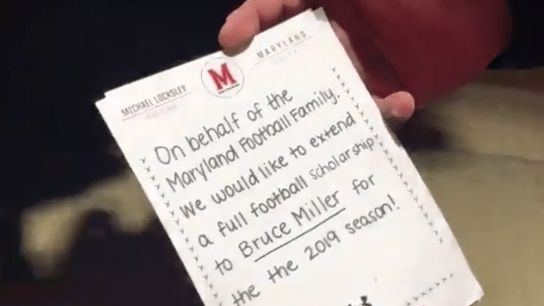 MICHAEL LOCKSLEY
M
MARYLAND
On behalf of the
Maryland Football Family.
We would like to extend
a full football scholarship
to Bruce Miller for
the the 2019 season!